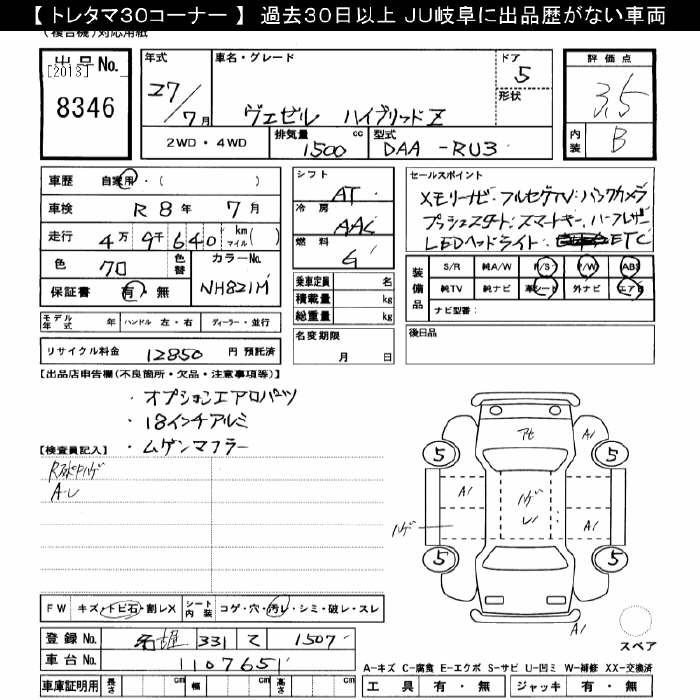 【 トレタマ30コーナー 】 過去30日以上 JU岐阜に出品歴がない車両
(複合機)対応用紙
出品 No. [2013] 8346
年式 27/7月
車名・グレード ヴェゼル ハイブリッドZ
ドア 5
形状
評価点 3.5
内装 B
2WD・4WD 排気量 1500 cc 型式 DAA -RU3
車歴 自家用・( )
車検 R8年 7月
走行 4万9千640 km マイル( )
色 クロ 色替 カラーNo. NH821M
保証書 有・無
モデル年式 年 ハンドル 左・右 ディーラー・並行
リサイクル料金 12850 円 預託済
シフト AT
冷房 AAC
燃料 G
乗車定員 名
積載量 kg
総重量 kg
名変期限 月 日
セールスポイント
メモリーナビ・フルセグTV・バックカメラ
プッシュスタート・スマートキー・ハーフレザー
LEDヘッドライト・ETC
装備品 S/R 純A/W P/S P/W ABS
純TV 純ナビ 革シート 外ナビ エアB
ナビ型番:
後日品
【出品店申告欄(不良箇所・欠品・注意事項等)】
・オプションエアロパーツ
・18インチアルミ
・ムゲンマフラー
【検査員記入】
A-U
アセ A1
5 5
A1 ハゲ A1
ハゲ
5 5
A1
スペア
FW キズ・トビ石・割レX シート内装 コゲ・穴・汚レ・シミ・破レ・スレ
登録 No. 331 て 1507
車台 No. 1107651
車庫証明用 長さ cm 幅 cm 高さ cm
A-キズ C-腐食 E-エクボ S-サビ U-凹ミ W-補修 XX-交換済
工具 有・無 ジャッキ 有・無